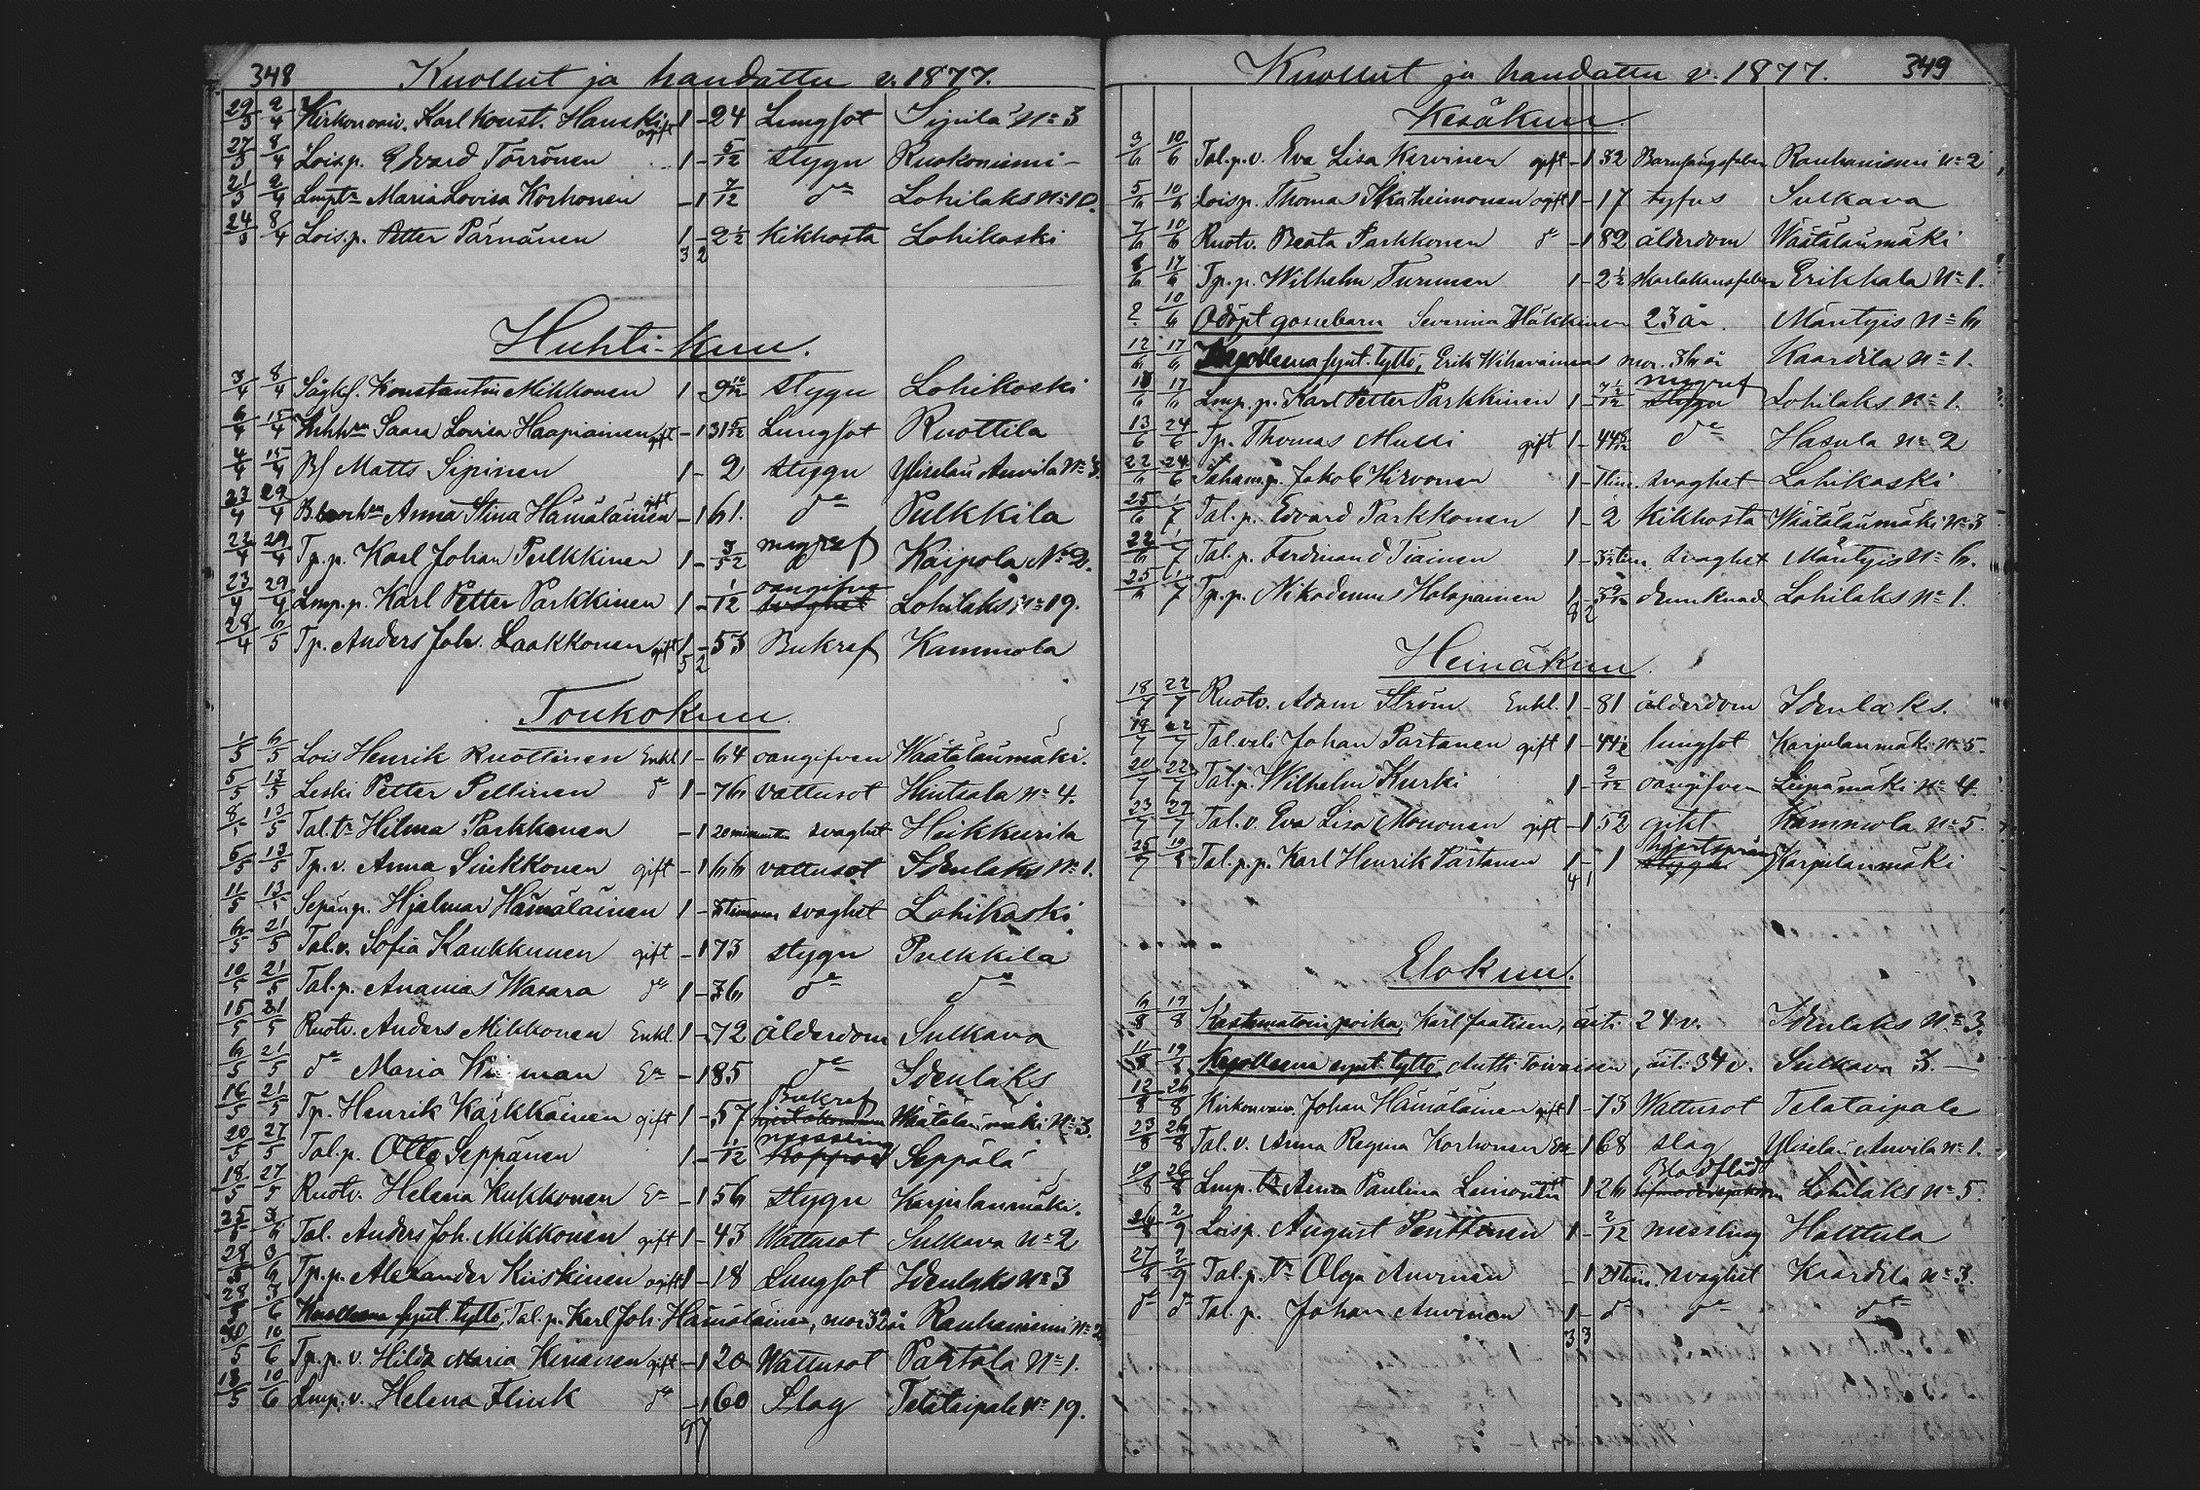 348 Kuollut ja haudattu v. 1877.
29/3 2/4 Karl Konst. Hauski ogift 1 - 24 Lungsot Sipilä No 3
27/3 8/4 Lois.p. Edvard Törrönen 1 - 5/12 stygn Ruokoniemi -
21/3 2/4 Lmp.tr Maria Lovisa Korhonen - 1 7/12 do Lohilaks No 10.
24/3 8/4 Lois.p. Petter Pärnänen 1 - 2½ kikhosta Lohikoski
3 2
Huhti-kuu.
3/4 8/4 Konstantin Mikkonen 1 - 9 10/12 stygn Lohikoski
6/4 15/4 Saara Lovisa Haapiainen gift - 1 31 Lungsot Ruottila
4/4 15/4 Matts Sipinen 1 - 2 stygn Auvila No 3.
23/4 29/4 Anna Stina Hämäläinen gift - 1 61. do Pulkkila
22/4 29/4 Tp.p. Karl Johan Pulkkinen 1 - magref Kaipola No 2.
23/4 29/4 Lmp.p. Karl Petter Parkkinen 1 - 1/12 oangifven svaghet Lohilaks No 19.
28/4 6/5 Tp. Anders Joh. Laakkonen gift 1 - 53 Bukref Kammola
5 2
Toukokuu.
1/5 6/5 Lois Henrik Ruottinen Enkl 1 - 64 oangifven Wäätälänmäki.
5/5 13/5 Leski Petter Peltinen do 1 - 76 vattusot Hintsala No 4.
8/5 13/5 Tal.tr Hilma Parkkonen - 1 20 minuter svaghet Heikkurila
5/5 13/5 Tp.v. Anna Sinkkonen gift - 1 66 vattusot Idenlaks No 1.
11/5 13/5 Sepän p. Hjalmar Hämäläinen 1 - timmar svaghet Lohikoski
6/5 21/5 Tal.v. Sofia Kaukkunen gift - 1 73 stygn Pulkkila
10/5 21/5 Tal.p. Ananias Wasara do 1 - 36 do do
15/5 21/5 Ruotv. Anders Mikkonen Enkl. 1 - 72 ålderdom Sulkava
6/5 21/5 do Maria Ea - 1 85 do Idenlaks
16/5 21/5 Tp. Henrik Kärkkäinen gift 1 - 57 Bukref Wäätälänmäki No 3.
20/5 27/5 Tal.p. Otto Seppänen 1 - 1/12 messling koppor Seppälä
18/5 27/5 Ruotv. Helena Kukkonen Ea - 1 56 stygn Karjulanmäki.
25/5 3/6 Tal. Anders Joh. Mikkonen gift 1 - 43 Wattusot Sulkava No 2
28/5 3/6 Tp.p. Alexander Kiiskinen ogift 1 - 18 Lungsot Idenlaks No 3
28/5 3/6 Kuolleena synt. tyttö, Tal.p. Karl Joh. Hämäläinen, mor 32 år Rauhaniemi No 2
30/5 10/6 Tp.p.v. Hilda Maria gift - 1 20 Wattusot Partala No 1.
13/5 10/6 Lmp.v. Helena Flink do - 1 60 Slag Telataipale No 19.
9 7
Kuollut ja haudattu v. 1877. 349
Kesäkuu
3/6 10/6 Tal.p.v. Eva Lisa Kervinen gift - 1 32 Barnsängsfeber Rauhaniemi No 2
5/6 10/6 Lois p. Thomas ogift 1 - 17 tyfus Sulkava
7/6 10/6 Ruotv. Beata Parkkonen do - 1 82 ålderdom Wäätälänmäki
8/6 17/6 Tp.p. Wilhelm Turunen 1 - 2½ skarlakansfeber Erikkala No 1.
2/. 10/6 Odöpt gossebarn Severina Häkkinen 23 år. Mäntyis No 6
12/6 17/6 Kuolleena synt. tyttö, Erik mor. år Kaardila No 1.
17/6 Lmp.p. Karl Petter Parkkinen 1 - magref stygn Lohilaks No 1.
13/6 24/6 Tp. Thomas gift 1 - 44 do Hasula No 2
22/6 24/6 Jakob Hirvonen 1 - tim. svaghet Lohikoski
25/6 1/7 Tal.p. Edvard Parkkonen 1 - 2 kikhosta Wäätälänmäki No 3
22/6 1/7 Tal.p. Ferdinand Tiainen 1 - tim svaghet Mäntyis No 6.
25/6 1/7 Tp.p. Nikodemus Holopainen 1 - drunknad Lohilaks No 1.
8 2
Heinäkuu.
18/7 22/7 Ruotv. Adam Ström Enkl. 1 - 81 ålderdom Idenlaks.
19/7 22/7 Tal.veli Johan Partanen gift 1 - 44½ lungsot Karjulanmäki No 5.
20/7 22/7 Tal.p. Wilhelm Kurki 1 - 9/12 oangifven Leipämäki No 4
23/7 29/7 Tal.v. Eva Lisa Mononen gift - 1 52 gikt Kammola No 5.
25/7 Tal.p.p. Karl Henrik Partanen 1 - 1 stygn Karjulanmäki
4 1
Elokuu.
6/8 19/8 Kastematoin poika, Karl Jantisen, äiti 24 v. Idenlaks No 3.
11/8 19/8 Kuolleena synt. tyttö, Antti Toivaisen, äiti 34 v. Sulkava 3.
12/8 26/8 Johan Hämäläinen gift 1 - 73 Wattusot Telataipale
23/8 26/8 Tal.v. Anna Regina Korhonen Ea - 1 68 slag Auvila No 1.
19/8 26/8 Lmp.tr Anna Paulina Leinonen - 1 26 Blodflöd Lohilaks No 5.
2/9 Lois p. August Penttinen 1 - 2/12 messling Halttula
27/8 2/9 Tal.p.tr Olga Auvinen - 1 tim. svaghet Kaardila No 3.
do do Tal.p. Johan Auvinen 1 - do do do
3 3